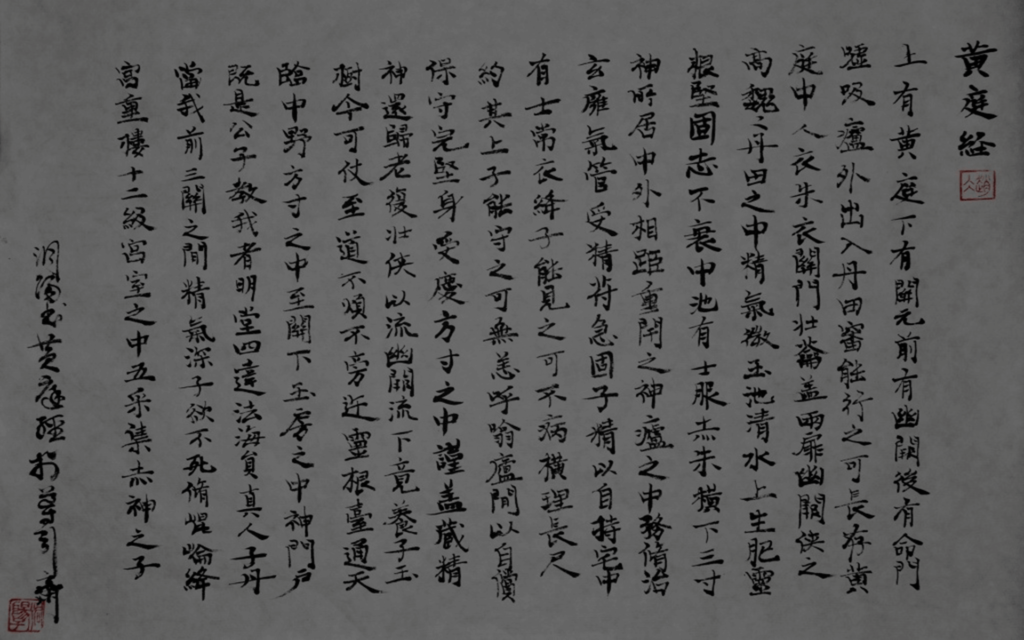 黄庭经
上有黄庭下有關元前有幽闕後有命門
嘘吸廬外出入丹田審能行之可長存黄
庭中人衣朱衣關門壮籥盖兩扉幽闕侠之
高魏之丹田之中精氣微玉池清水上生肥靈
根堅固志不衰中池有士服赤朱横下三寸
神所居中外相距重閇之神廬之中務脩治
玄廱氣管受精符急固子精以自持宅中
有士常衣絳子能見之可不病横理長尺
約其上子能守之可無恙呼噏廬間以自償
保守完堅身受慶方寸之中謹盖藏精
神還歸老復壮侠以流幽闕流下竟養子玉
樹令可仗至道不煩不旁迕靈根臺通天
臨中野方寸之中至關下玉房之中神門户
既是公子教我者明堂四達法海員真人子丹
當我前三關之間精氣深子欲不死脩崐崘絳
宫重樓十二級宫室之中五采集赤神之子
黄庭經